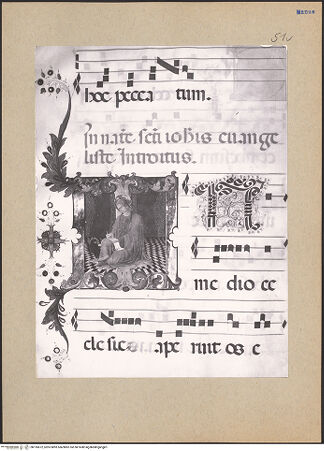 51v
hoc pecca tum.
In nat̄e sc̄ti ioh̄is euange
liste Introitus.
IN
me dio ec
cle sie. ape ruit os e